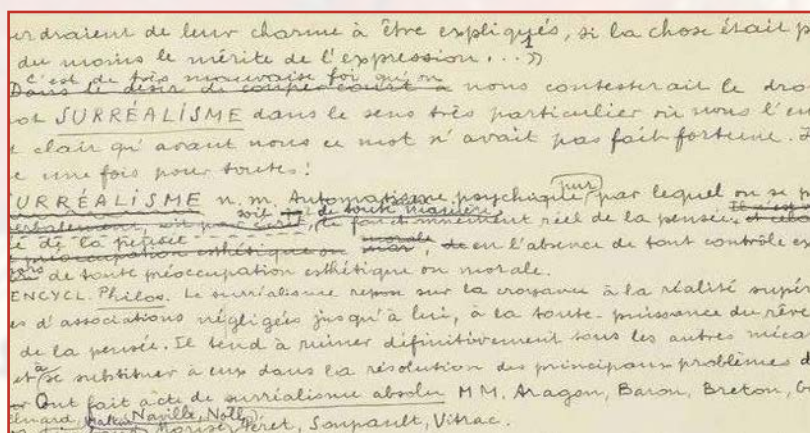 erdraient de leur charme à être expliqués, si la chose était p
du moins le mérite de l'expression...»
c'est de très mauvaise foi qu'on
Dans le désir de couper court à nous contesterait le dro
ot SURRÉALISME dans le sens très particulier où nous l'en
t clair qu'avant nous ce mot n'avait pas fait fortune. J
e une fois pour toutes:
URRÉALISME n. m. Automatisme psychique pur par lequel on se p
verbalement, soit par écrit, soit de toute manière, le fonctionnement réel de la pensée. Il
é de la pensée
préoccupation esthétique ou morale, en l'absence de tout contrôle ex
de toute préoccupation esthétique ou morale.
ENCYCL. Philos. Le surréalisme repose sur la croyance à la réalité supér
es d'associations négligées jusqu'à lui, à la toute-puissance du rêve
de la pensée. Il tend à ruiner définitivement tous les autres méca
et à se substituer à eux dans la résolution des principaux problèmes d
Ont fait acte de surréalisme absolu MM. Aragon, Baron, Breton,
Eluard, Naville, Noll,
Morise, Péret, Soupault, Vitrac.